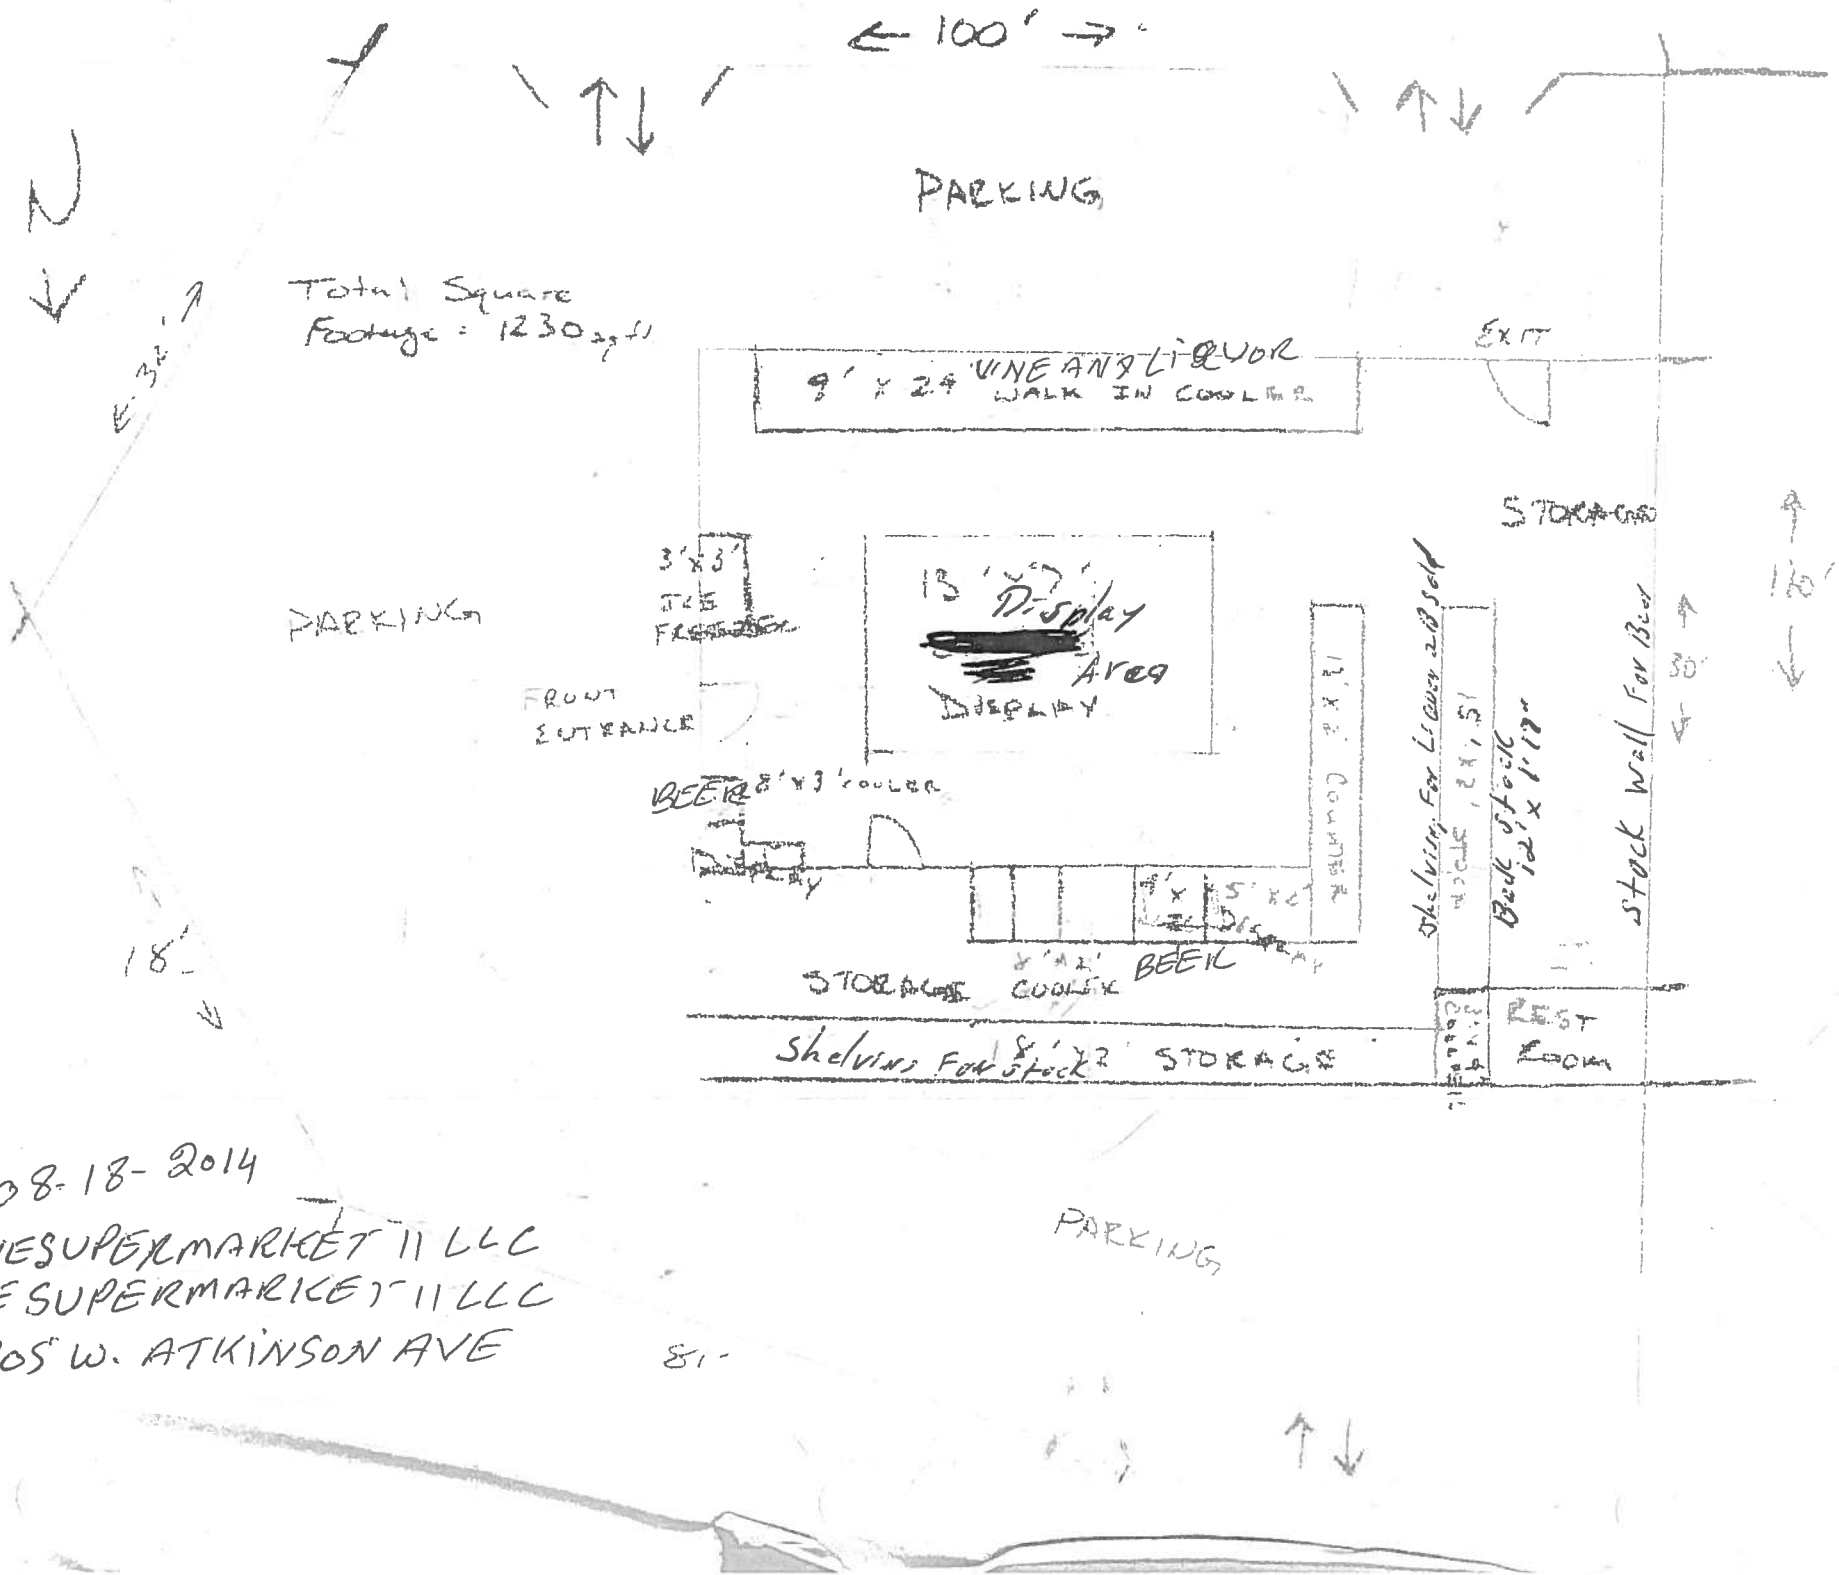 100'
N
PARKING
Total Square
Footage = 1230 sq ft
EXIT
VINE AND LIQUOR
9' X 29' WALK IN COOLER
STORAGE
3' X 3'
ICE
FREEZER
13' X 7'
Display
Area
DISPLAY
PARKING
FRONT
ENTRANCE
BEER 8' X 3' COOLER
Display
13' X 2' COUNTER
Shelving For Liquor
Back Stock
12' X 1'
Stock Wall For Beer
30'
5' X 2'
DISPLAY
BEER
STORAGE
8' X 2'
COOLER
Shelving For Stock
STORAGE
REST
ROOM
18'
08-18-2014
ESUPERMARKET II LLC
E SUPERMARKET II LLC
05 W. ATKINSON AVE
PARKING